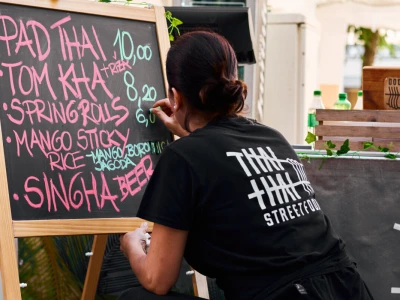 PAD THAI 10,00
TOM KHA +RICE 8,20
SPRINGROLLS 6,
MANGO STICKY
RICE -MANGO/BORŮ
JAGODA
SINGHA-BEER
THAI
THAI
STREETFOOD